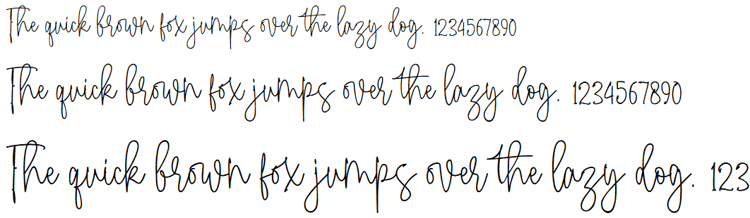 The quick brown fox jumps over the lazy dog. 1234567890
The quick brown fox jumps over the lazy dog. 1234567890
The quick brown fox jumps over the lazy dog. 123